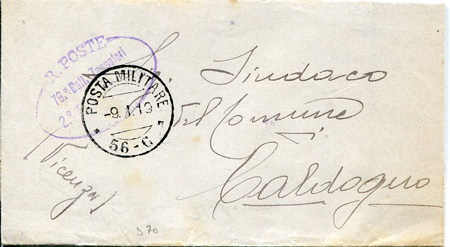 R. POSTE
76.º Batt. Zappatori
2.ª
POSTA MILITARE
-9.1.19
56-C
Sindaco
del Comune
Caldogno
(Vicenza)